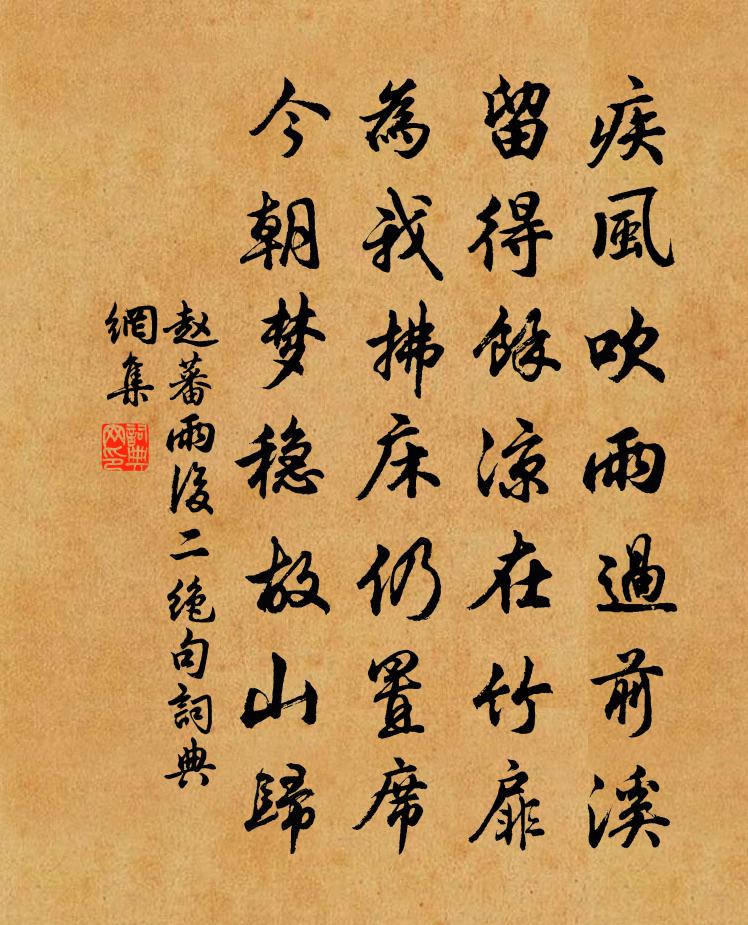 疾風吹雨過前溪
留得餘涼在竹扉
為我拂床仍置席
今朝梦稳故山歸
赵蕃雨後二绝句詞典
網集
詞典
网印